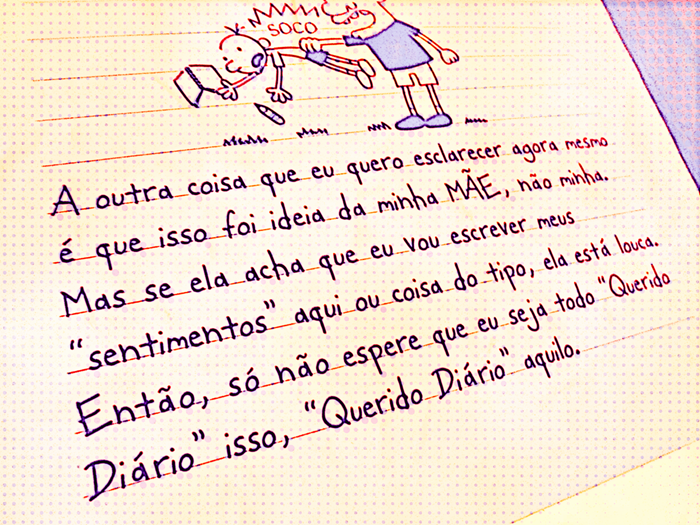 SOCO
A outra coisa que eu quero esclarecer agora mesmo
é que isso foi ideia da minha MÃE, não minha.
Mas se ela acha que eu vou escrever meus
"sentimentos" aqui ou coisa do tipo, ela está louca.
Então, só não espere que eu seja todo "Querido
Diário" isso, "Querido Diário" aquilo.